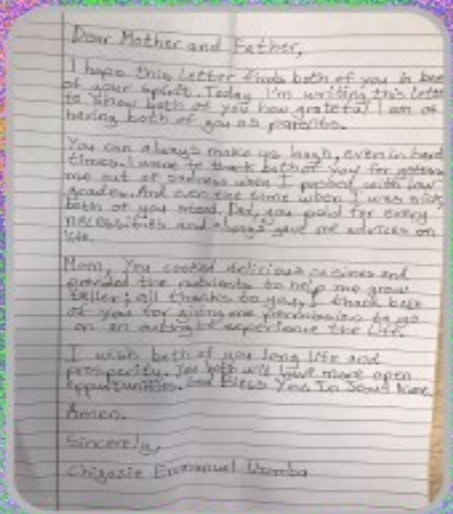 Dear Mother and Father,
I hope this letter finds both of you in best
of your spirit. Today I'm writing this letter
to show both of you how grateful I am of
having both of you as parents.
You can always make us laugh, even in hard
times. I want to thank both of you for getting
me out of sadness when I passed with low
grades. And even the time when I was sick,
both of you Dad, you paid for every
necessities and always gave me advices on
life.
Mom, You cooked delicious cuisines and
provided the nutrients to help me grow
taller; all thanks to you. I thank both
of you for giving me permission to go
on an outing to experience the life.
I wish both of you long life and
prosperity. You both will have more open
opportunities. God Bless You In Jesus Name.
Amen.
Sincerely,
Chigozie Emmanuel